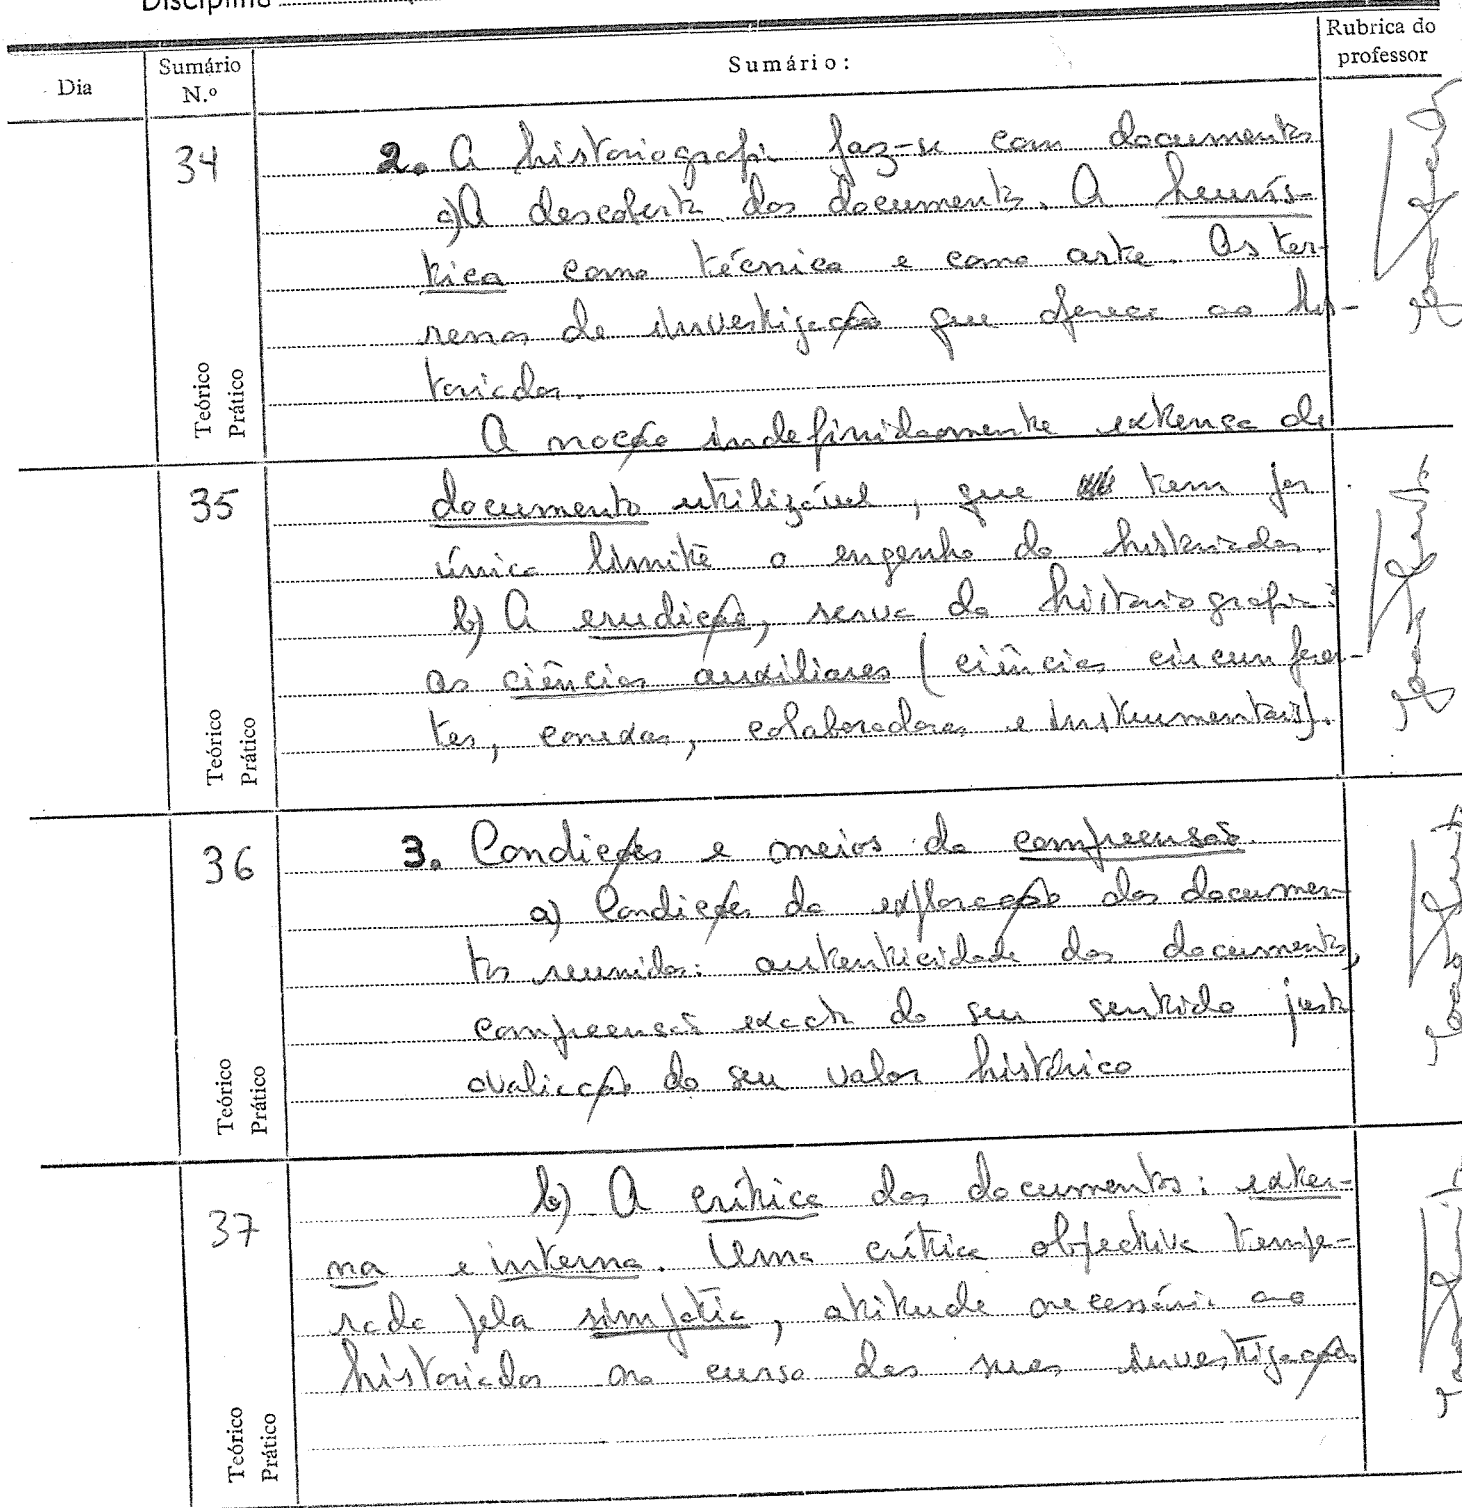 Disciplina
Dia
Sumário N.º
Sumário:
Rubrica do professor
34
2. A historiografia faz-se com documentos
a) A descoberta dos documentos. A heurís-
tica como técnica e como arte. Os ter-
renos de investigação que oferece ao his-
toriador.
A noção indefinidamente extensa de
Teórico
Prático
35
documento utilizável, que tem por
único limite o engenho do historiador.
b) A erudição, serva da historiografia:
as ciências auxiliares (ciências circunferen-
tes, conexas, colaboradoras e instrumentais).
Teórico
Prático
36
3. Condições e meios da compreensão.
a) Condições da exploração dos documen-
tos reunidos: autenticidade dos documentos,
compreensão exacta do seu sentido justa
avaliação do seu valor histórico
Teórico
Prático
37
b) A crítica dos documentos: exter-
na e interna. Uma crítica objectiva tempe-
rada pela simpatia, atitude necessária ao
historiador no curso das suas investigações
Teórico
Prático